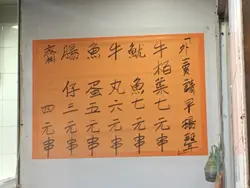 「外賣請早揚聲」
牛栢葉七元串
魷魚七元串
牛丸六元串
魚蛋五元串
腸仔三元串
齋四元串